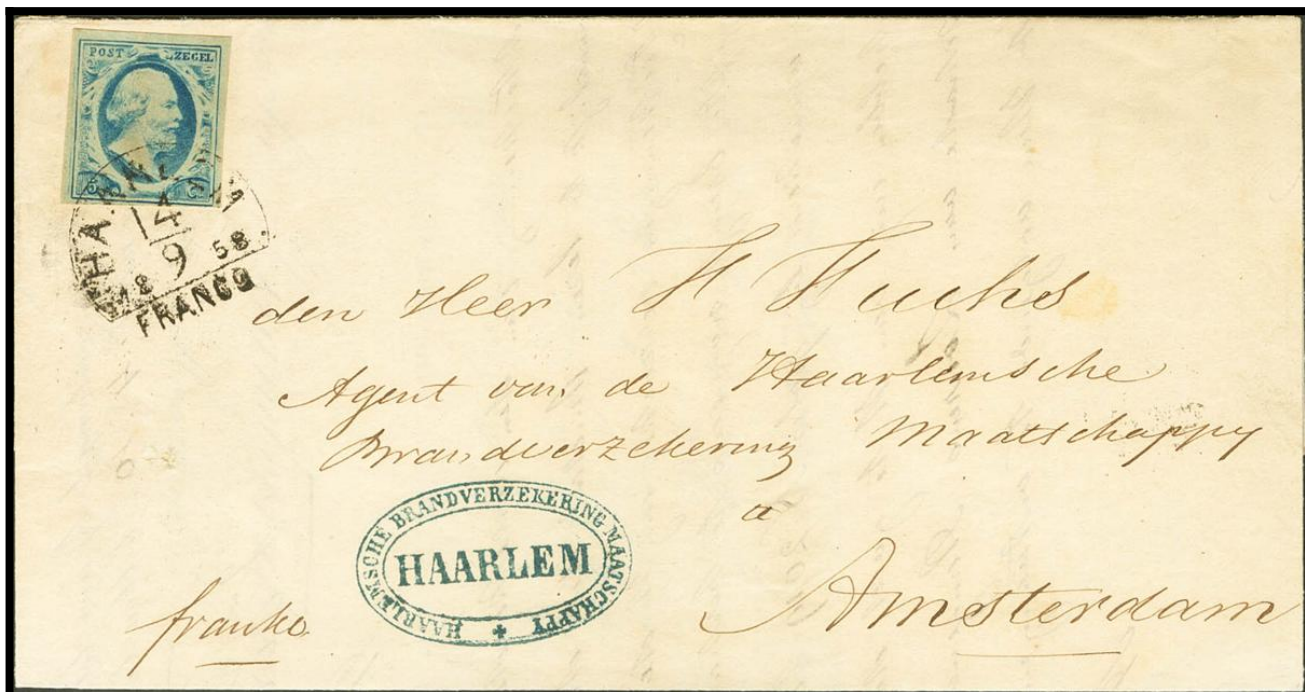 POST ZEGEL
5
HAARLEM
14
9
18 58
FRANCO
den Heer H Fuchs
Agent van de Haarlemsche
Brandverzekering Maatschappy
a
Amsterdam
franko
HAARLEMSCHE BRANDVERZEKERING MAATSCHAPPY
HAARLEM